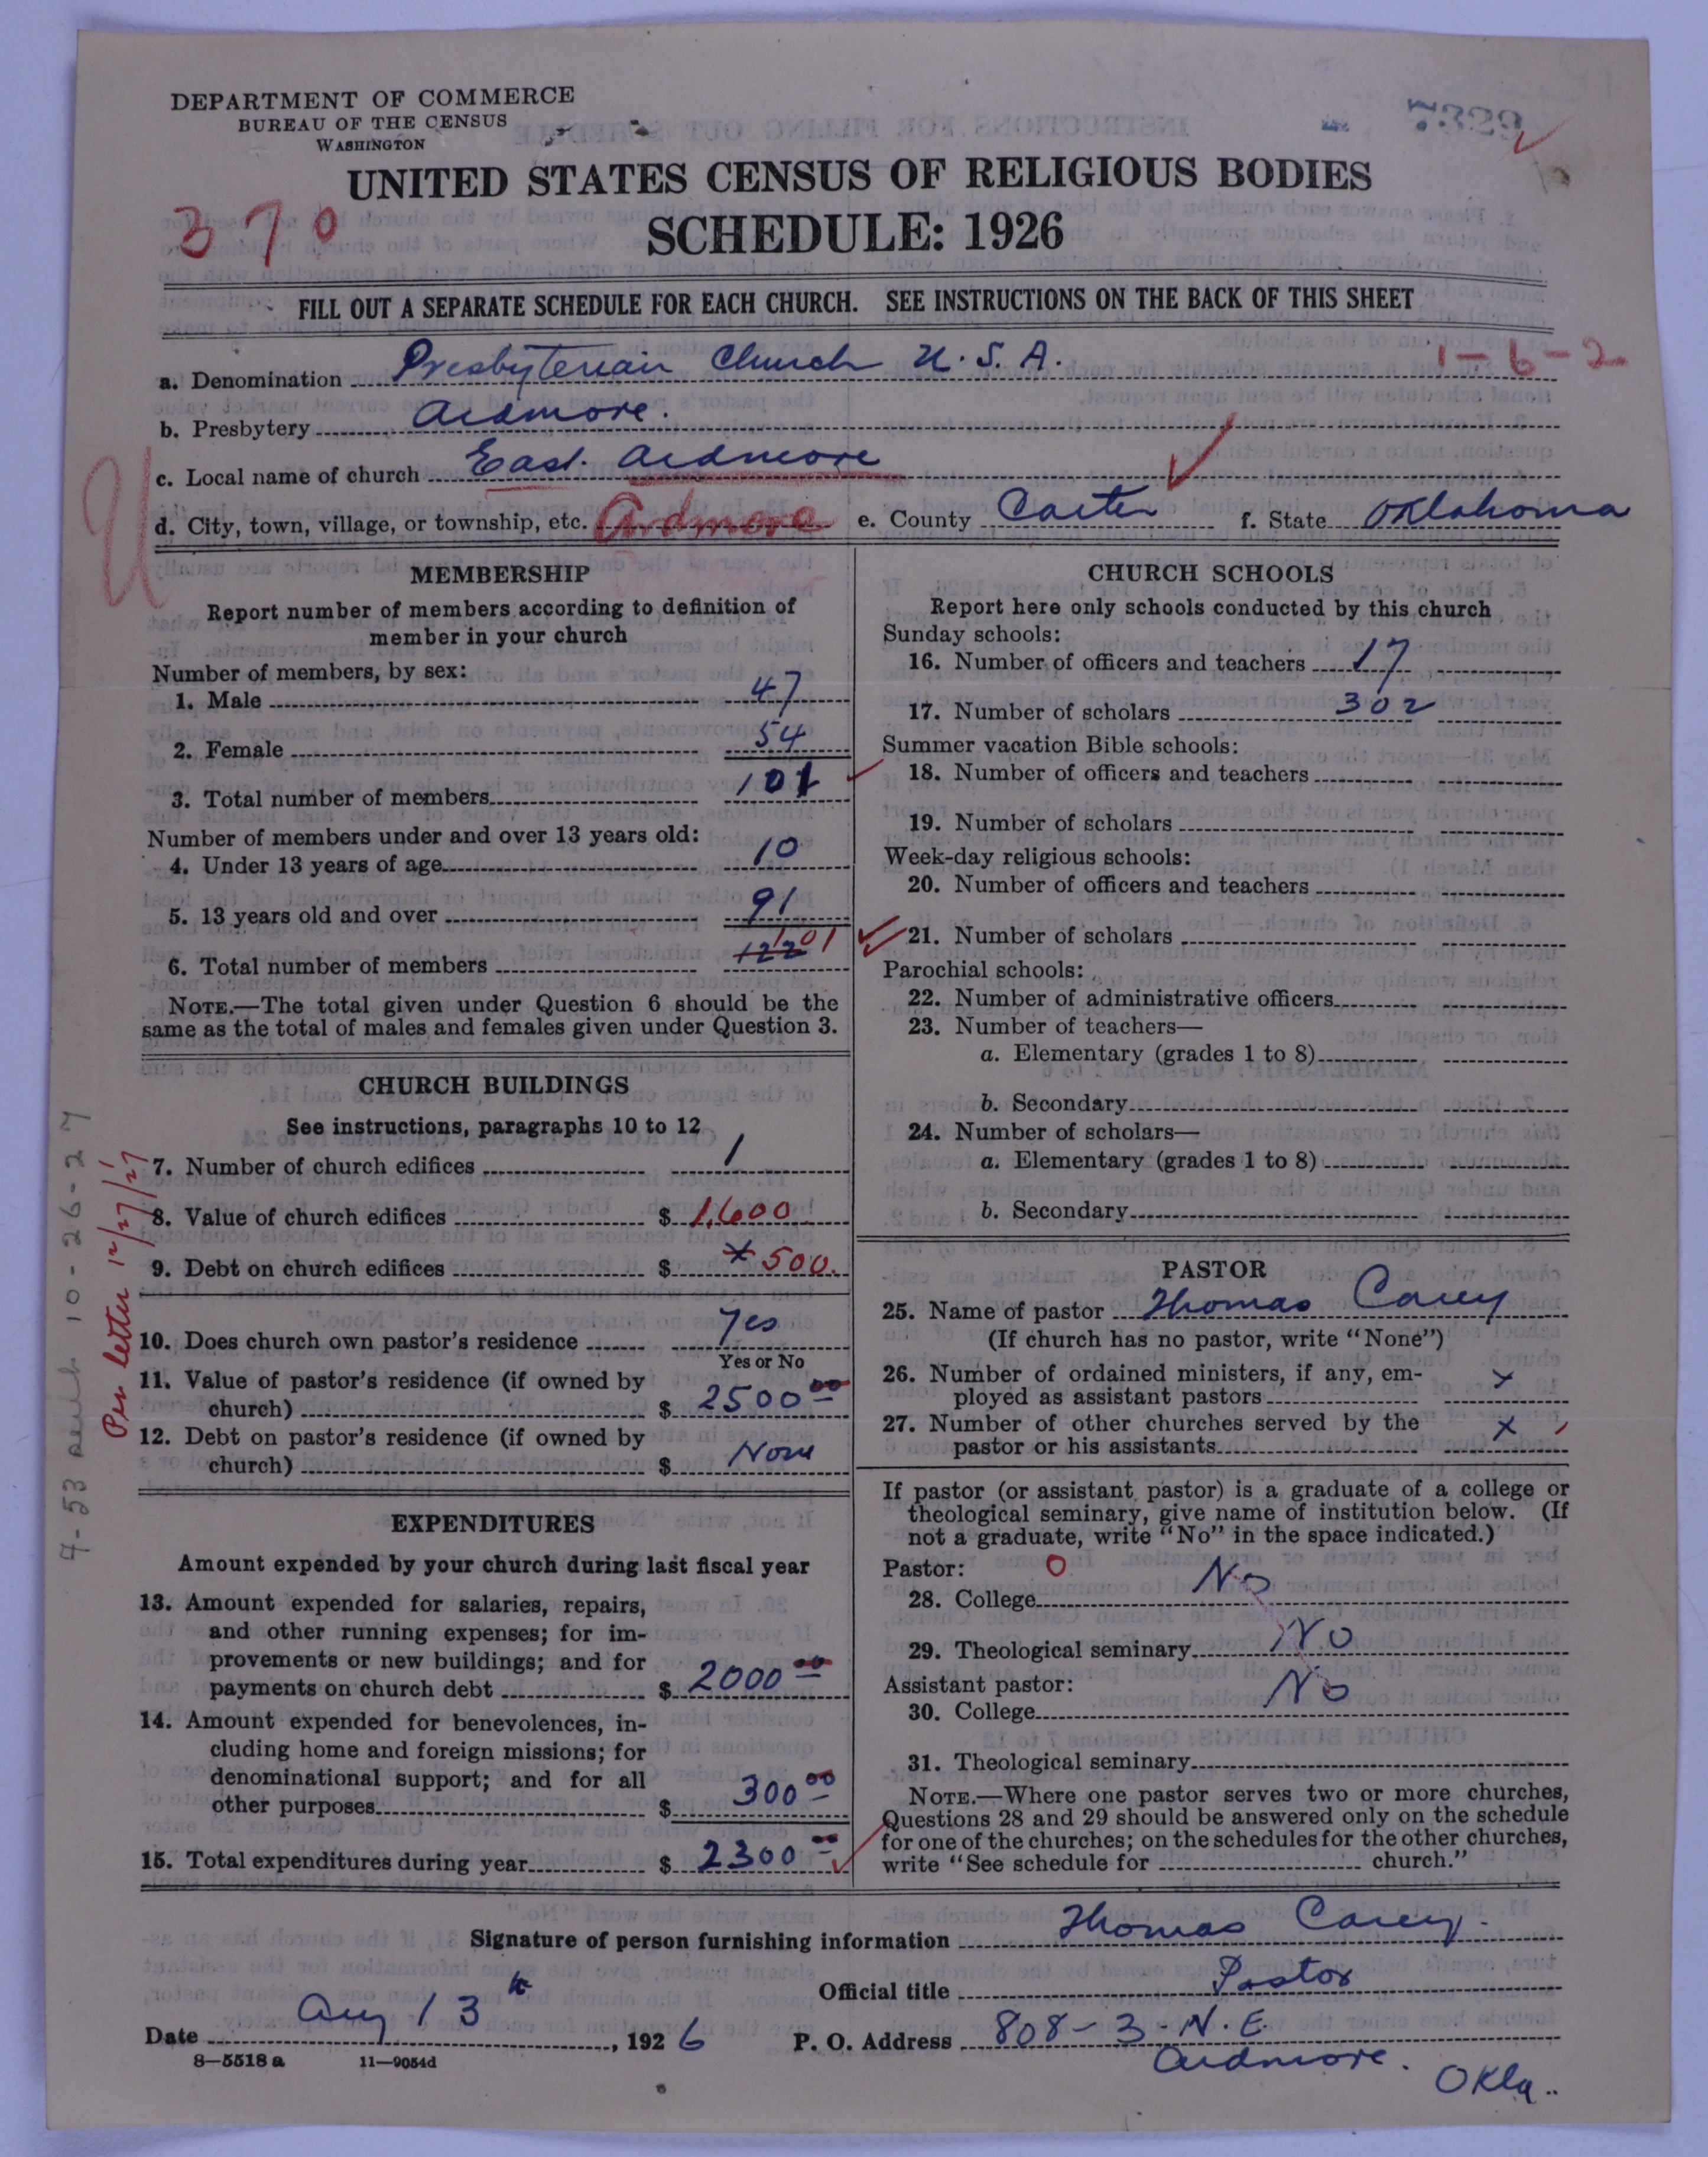 DEPARTMENT OF COMMERCE
BUREAU OF THE CENSUS
WASHINGTON
7329
UNITED STATES CENSUS OF RELIGIOUS BODIES
370
SCHEDULE: 1926
FILL OUT A SEPARATE SCHEDULE FOR EACH CHURCH. SEE INSTRUCTIONS ON THE BACK OF THIS SHEET
1-6-2
a. Denomination Presbyterian Church U.S.A.
b. Presbytery Ardmore.
c. Local name of church East. Ardmore
d. City, town, village, or township, etc. Ardmore e. County Carter f. State Oklahoma
MEMBERSHIP
Report number of members according to definition of
member in your church
Number of members, by sex:
1. Male 47
2. Female 54
3. Total number of members 101
Number of members under and over 13 years old:
4. Under 13 years of age 10
5. 13 years old and over 91
6. Total number of members 122 101
NOTE.—The total given under Question 6 should be the
same as the total of males and females given under Question 3.
CHURCH BUILDINGS
See instructions, paragraphs 10 to 12
7. Number of church edifices 1
8. Value of church edifices $ 1,600
9. Debt on church edifices $ x 500.
10. Does church own pastor's residence Yes
Yes or No
11. Value of pastor's residence (if owned by
church) $ 2500 00
12. Debt on pastor's residence (if owned by
church) $ None
Per letter 12/27/27
10-26-27
EXPENDITURES
Amount expended by your church during last fiscal year
13. Amount expended for salaries, repairs,
and other running expenses; for im-
provements or new buildings; and for
payments on church debt $ 2000 00
14. Amount expended for benevolences, in-
cluding home and foreign missions; for
denominational support; and for all
other purposes $ 300 00
15. Total expenditures during year $ 2300 00
CHURCH SCHOOLS
Report here only schools conducted by this church
Sunday schools:
16. Number of officers and teachers 17
17. Number of scholars 302
Summer vacation Bible schools:
18. Number of officers and teachers
19. Number of scholars
Week-day religious schools:
20. Number of officers and teachers
21. Number of scholars
Parochial schools:
22. Number of administrative officers
23. Number of teachers—
a. Elementary (grades 1 to 8)
b. Secondary
24. Number of scholars—
a. Elementary (grades 1 to 8)
b. Secondary
PASTOR
25. Name of pastor Thomas Carey
(If church has no pastor, write "None")
26. Number of ordained ministers, if any, em-
ployed as assistant pastors x
27. Number of other churches served by the
pastor or his assistants x
If pastor (or assistant pastor) is a graduate of a college or
theological seminary, give name of institution below. (If
not a graduate, write "No" in the space indicated.)
Pastor: 0
28. College No
29. Theological seminary No
Assistant pastor:
30. College No
31. Theological seminary
NOTE.—Where one pastor serves two or more churches,
Questions 28 and 29 should be answered only on the schedule
for one of the churches; on the schedules for the other churches,
write "See schedule for church."
Signature of person furnishing information Thomas Carey.
Official title Pastor
Date Aug 13th, 1926 P. O. Address 808-3-N.E.
Ardmore. Okla..
8—5518a 11—9054d